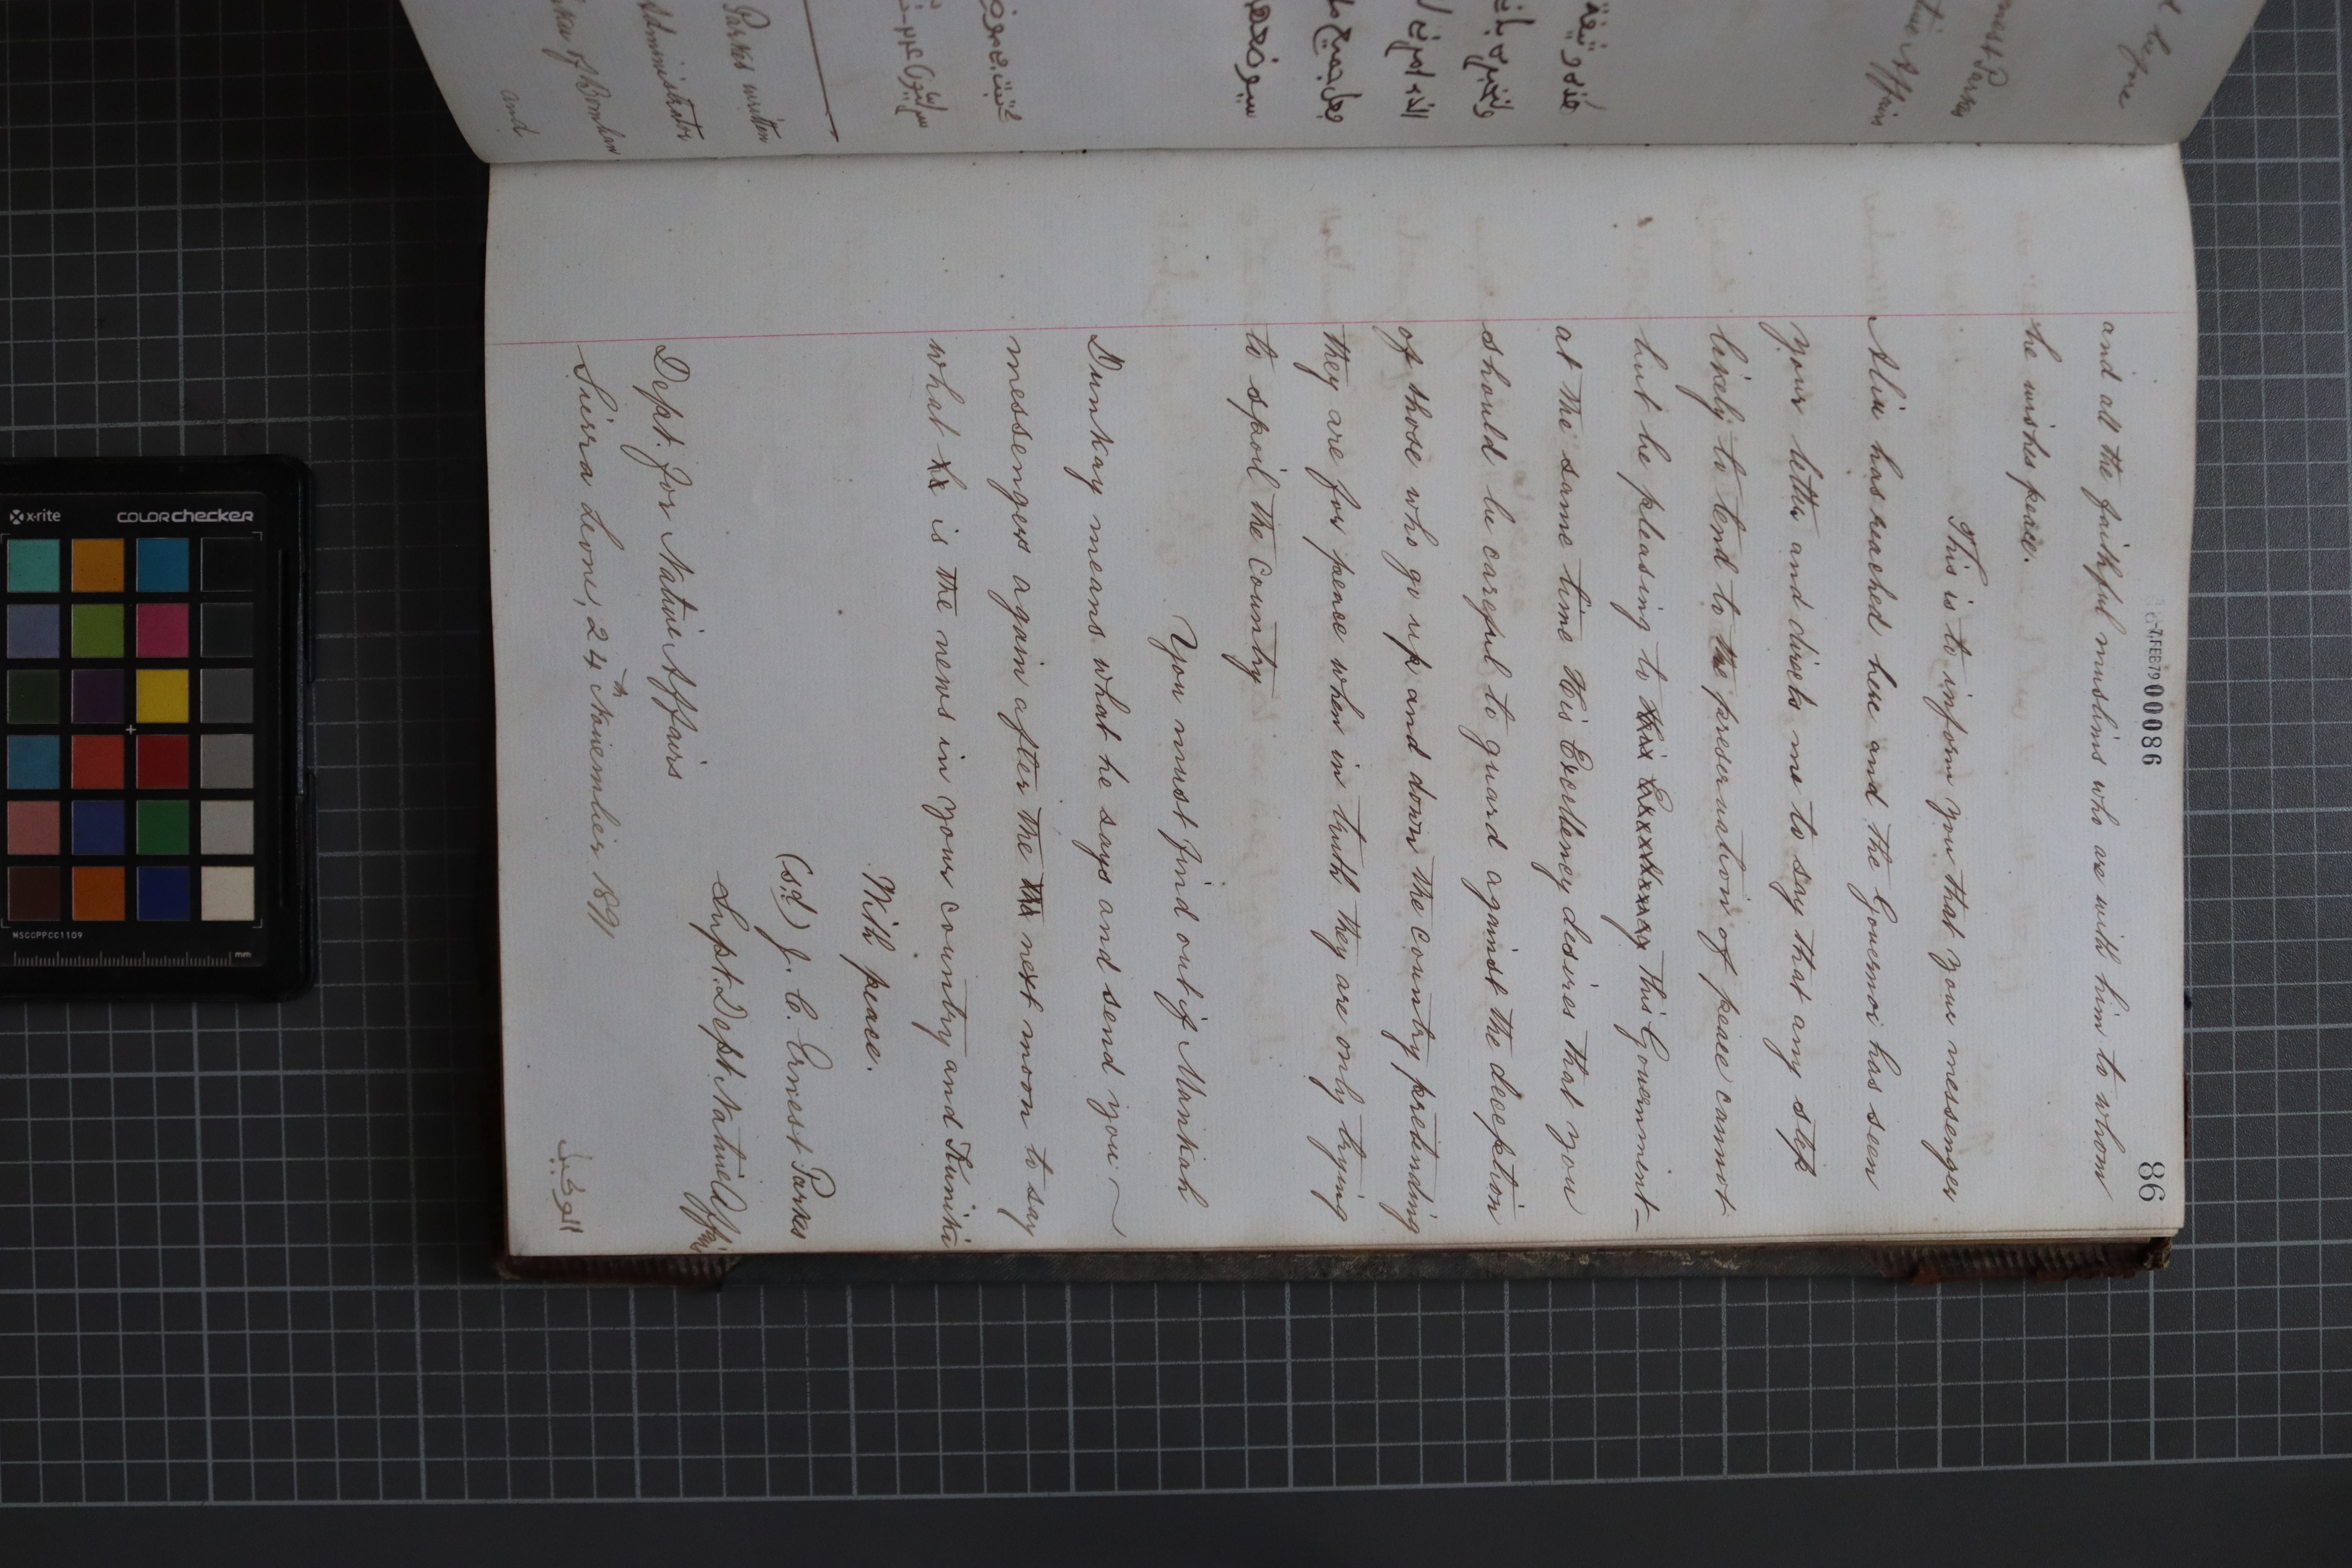 86
-7.FEB79 00086
and all the faithful muslims who are with him to whom
he wishes peace.
This is to inform you that your messenger
Aliu has reached here and the Governor has seen
your letter and directs me to say that any step
likely to tend to the preservation of peace cannot
but be pleasing to this Excellency This Government
at the same time His Excellency desires that you
should be careful to guard against the deception
of those who go up and down the country pretending
they are for peace when in truth they are only trying
to spoil the country
You must find out if Mankah
Dunkay means what he says and send your
messengers again after the the next moon to say
what he is the news in your country and Kunike
With peace.
(sd) J. C. Ernest Parkes
Supt. Dept. Native Affairs
Dept. for Native Affairs
Sierra Leone, 24th November 1891
الوكيل
t before
nest Parkes
tive Affairs
Parkes written
Administrator
of Bomban
and
x-rite
colorchecker
MSCCPPCC1109
mm